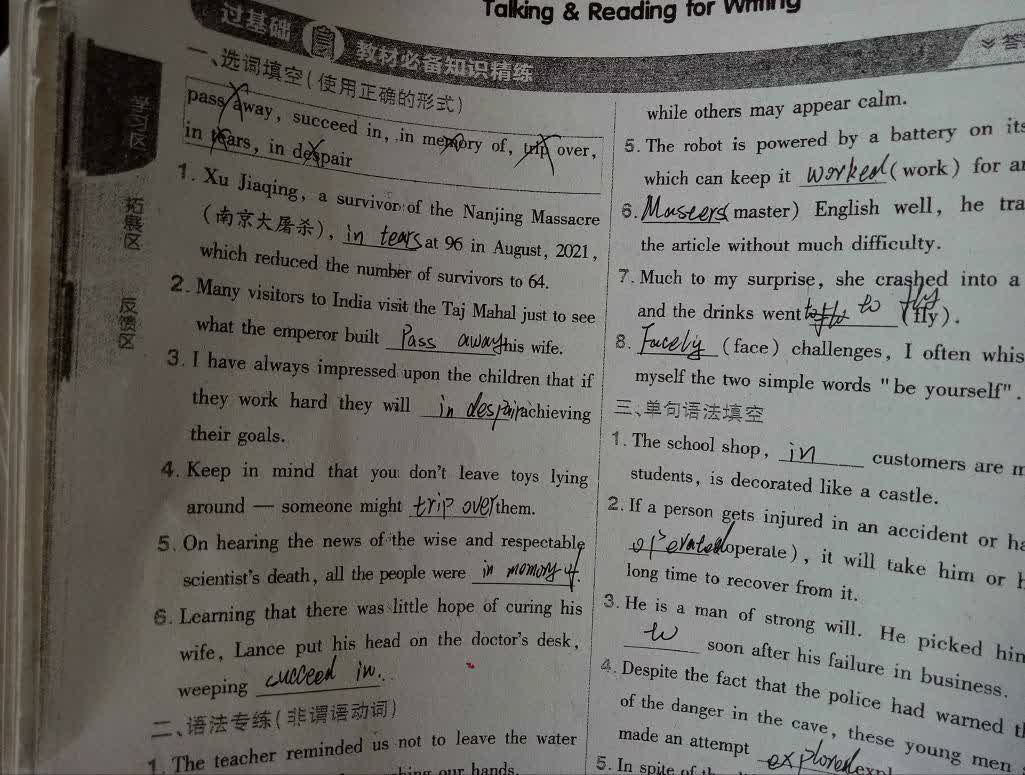 Talking & Reading for Writing
过基础 教材必备知识精练
学习区
拓展区
反馈区
一、选词填空(使用正确的形式)
pass away, succeed in, in memory of, trip over,
in tears, in despair
1. Xu Jiaqing, a survivor of the Nanjing Massacre
(南京大屠杀), in tears at 96 in August, 2021,
which reduced the number of survivors to 64.
2. Many visitors to India visit the Taj Mahal just to see
what the emperor built Pass away his wife.
3. I have always impressed upon the children that if
they work hard they will in despair achieving
their goals.
4. Keep in mind that you don't leave toys lying
around — someone might trip over them.
5. On hearing the news of the wise and respectable
scientist's death, all the people were in memory of.
6. Learning that there was little hope of curing his
wife, Lance put his head on the doctor's desk,
weeping succeed in.
二、语法专练(非谓语动词)
1. The teacher reminded us not to leave the water
our hands.
while others may appear calm.
5. The robot is powered by a battery on its
which can keep it worked (work) for
6. Museers (master) English well, he
the article without much difficulty.
7. Much to my surprise, she crashed into a
and the drinks went to fly (fly).
8. Facely (face) challenges, I often
myself the two simple words "be yourself".
三、单句语法填空
1. The school shop, in customers are
students, is decorated like a castle.
2. If a person gets injured in an accident or
operated (operate), it will take him or
long time to recover from it.
3. He is a man of strong will. He picked
to soon after his failure in business.
4. Despite the fact that the police had warned
of the danger in the cave, these young men
made an attempt explored
5. In spite of